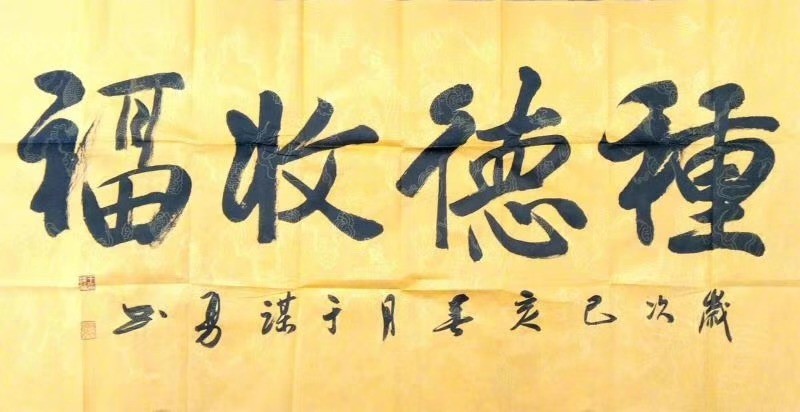 種德收福
歲次己亥春月于謀勇书